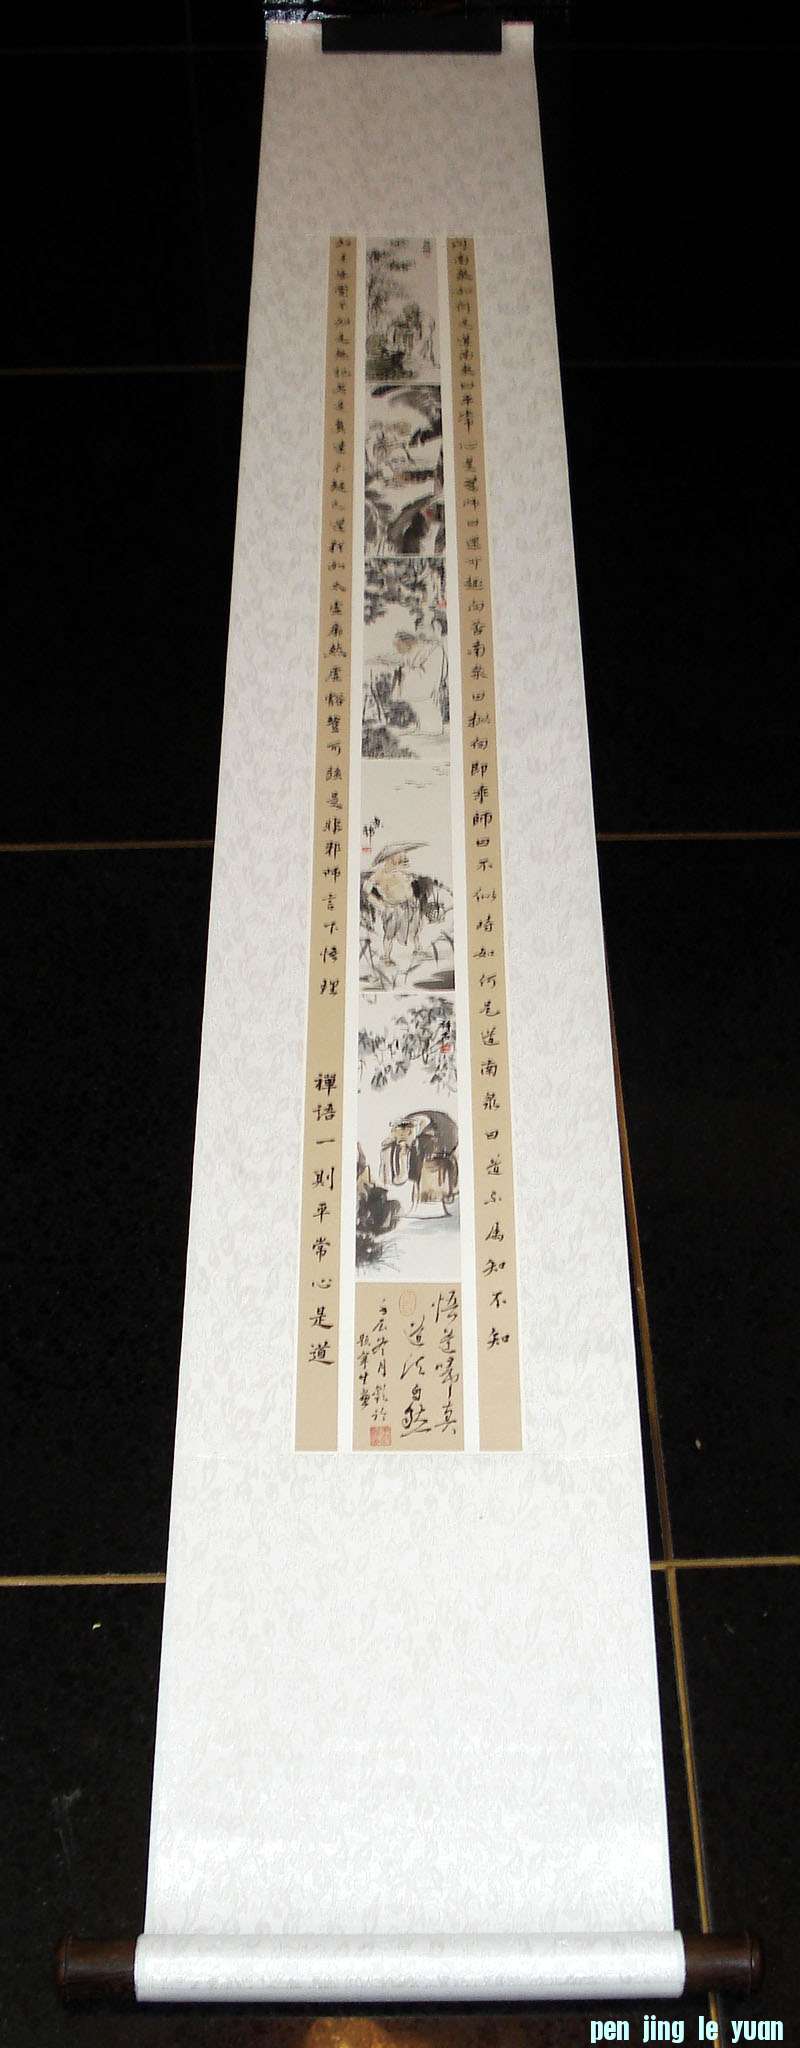 问南泉如何是道南泉曰平常心是道師曰還可趣向否南泉曰拟向即乖師曰不似時如何是道南泉曰道不属知不知
不知是無記若是真達不疑之道猶如太虛廓然虛豁豈可強是非邪師言下悟理
禪語一則平常心是道
悟道歸真
道法自然
冬月
pen jing le yuan